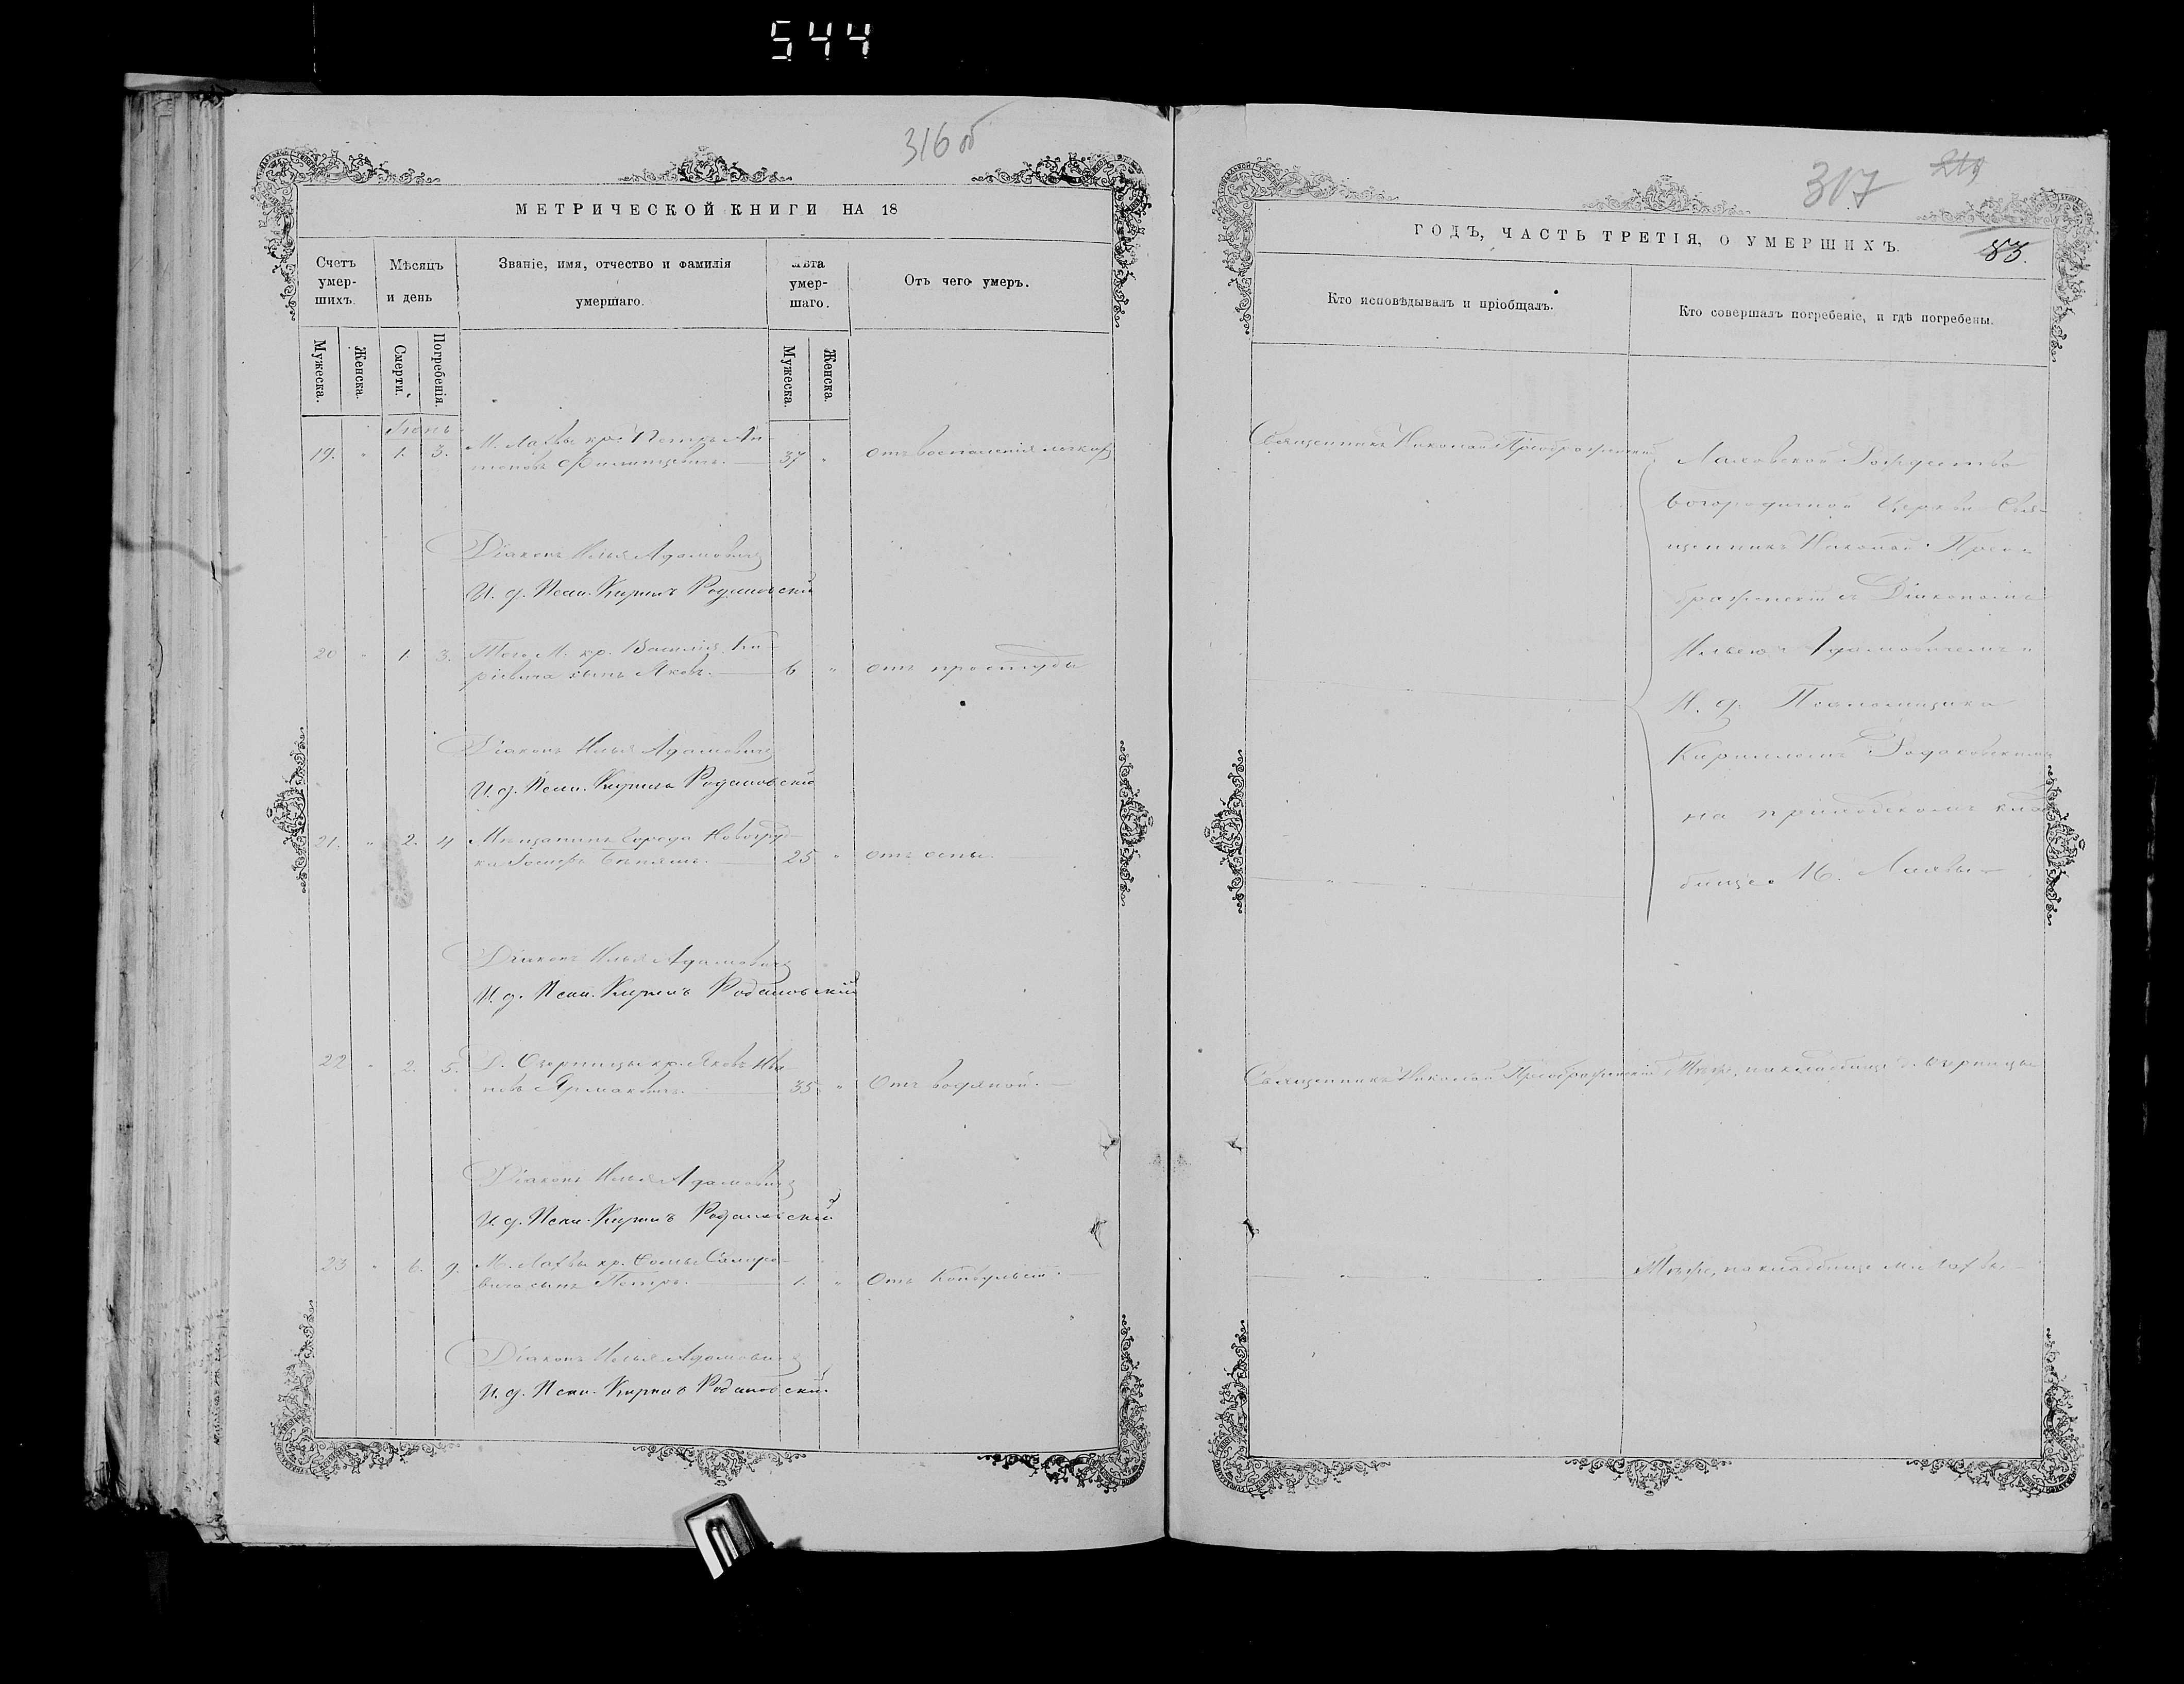 544
316 об
МЕТРИЧЕСКОЙ КНИГИ НА 18
Счетъ умер-шихъ.
Мѣсяцъ и день
Званіе, имя, отчество и фамилія умершаго.
Лѣта умер-шаго.
Отъ чего умеръ.
Мужеска.
Женска.
Смерти.
Погребенія.
Мужеска.
Женска.
Іюнь
19. " 1. 3. М. Лахвы кр. Петръ Ан-
тоновъ Филипцевичъ. 37 " отъ воспаленія легкихъ
Діаконъ Илья Адамовичъ
И. д. Псал. Кирилъ
20 " 1. 3. Того М. кр. Василія
сынъ Яковъ. 6 " отъ простуды
Діаконъ Илья Адамовичъ
И. д. Псал. Кирилъ
21. " 2. 4 Мѣщанинъ города Новогруд-
ка Іосифъ 25 " отъ оспы.
Діаконъ Илья Адамовичъ
И. д. Псал. Кирилъ
22 " 2. 5. кр. Яковъ Ива-
новъ Ярмаковичъ. 35. " Отъ водяной.
Діаконъ Илья Адамовичъ
И. д. Псал. Кирилъ
23 " 6. 9. М. Лахвы кр. Фомы
сынъ Петръ. 1. " Отъ конвульсій.
Діаконъ Илья Адамовичъ
И. д. Псал. Кирилъ
317 219
ГОДЪ, ЧАСТЬ ТРЕТІЯ, О УМЕРШИХЪ.
83.
Кто исповѣдывалъ и пріобщалъ.
Кто совершалъ погребеніе, и гдѣ погребены.
Священникъ Николай Преображенскій
Лаховской Рождество
Богородичной Церкви Свя-
щенникъ Николай Прео-
браженскій съ Діакономъ
Ильею Адамовичемъ и
И. д. Псаломщика
Кирилломъ
на приходскомъ клад-
бище М. Лахвы
Священникъ Николай Преображенскій
Тѣже, на кладбище д.
Тѣже, на кладбище м. Лахвы.